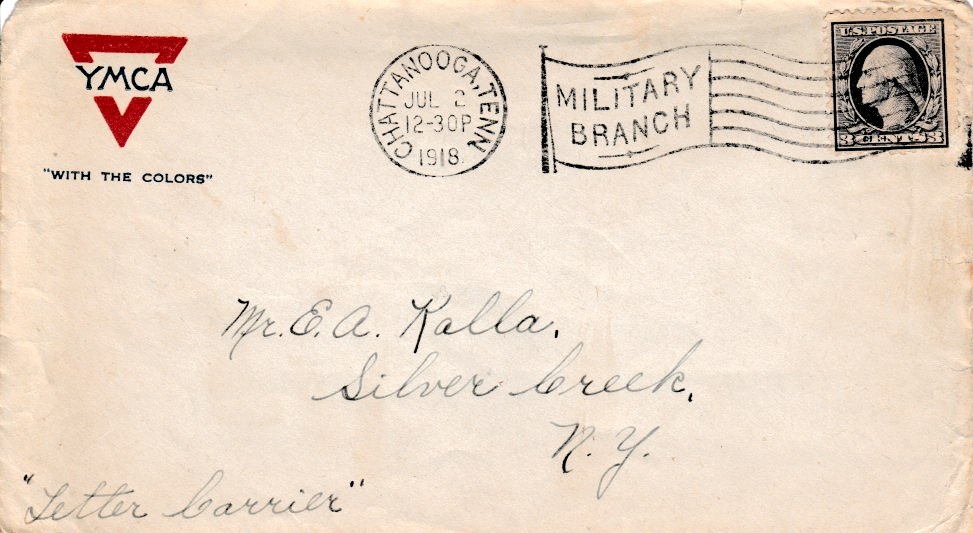 YMCA
"WITH THE COLORS"
CHATTANOOGA, TENN.
JUL 2
12-30P
1918
MILITARY
BRANCH
U.S. POSTAGE
3 CENTS 3
Mr. E. A. Kalla.
Silver Creek,
N. Y.
"Letter Carrier"